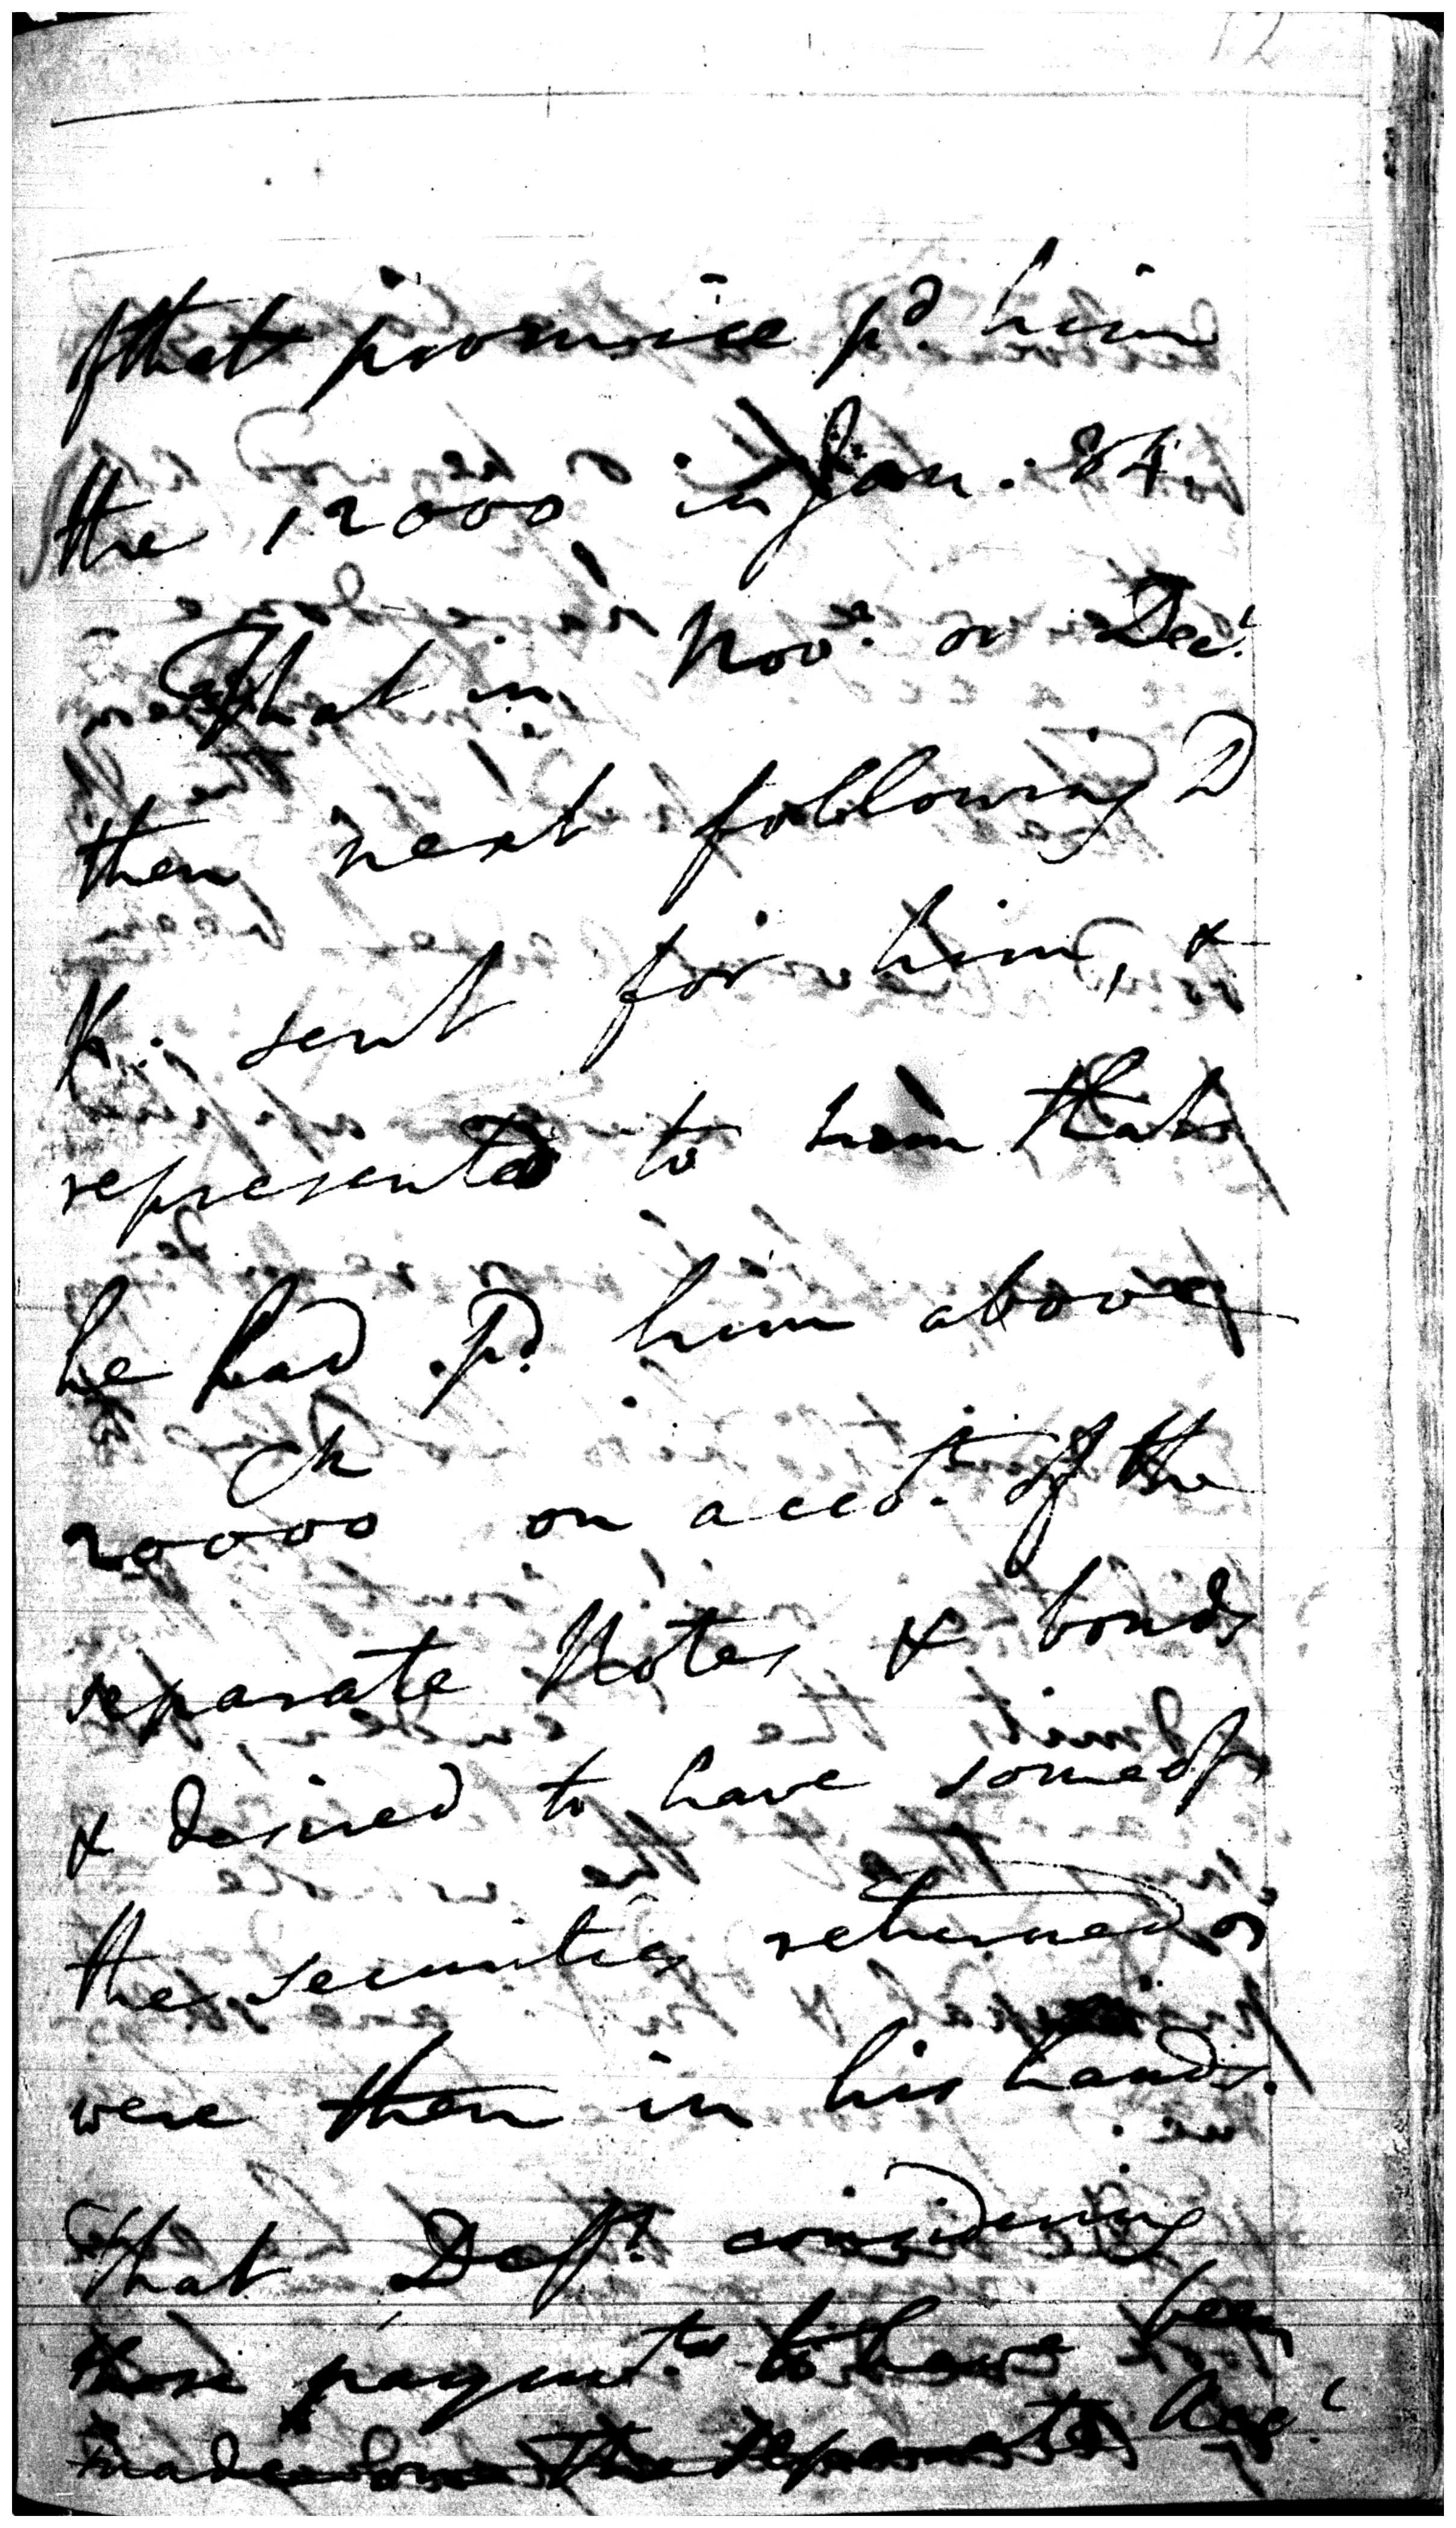 12
of that promise pd. him
the 12000 in Jan. 84
That in Novr. or Decr.
then next following D
K. sent for him, &
represented to him that
he had pd. him above
Ch
20000 on accot. of the
separate Notes & bonds
& desired to have some of
the securities returned as
were then in his hands.
That Deft. considering
those paymts. to have been
made on the separate Age